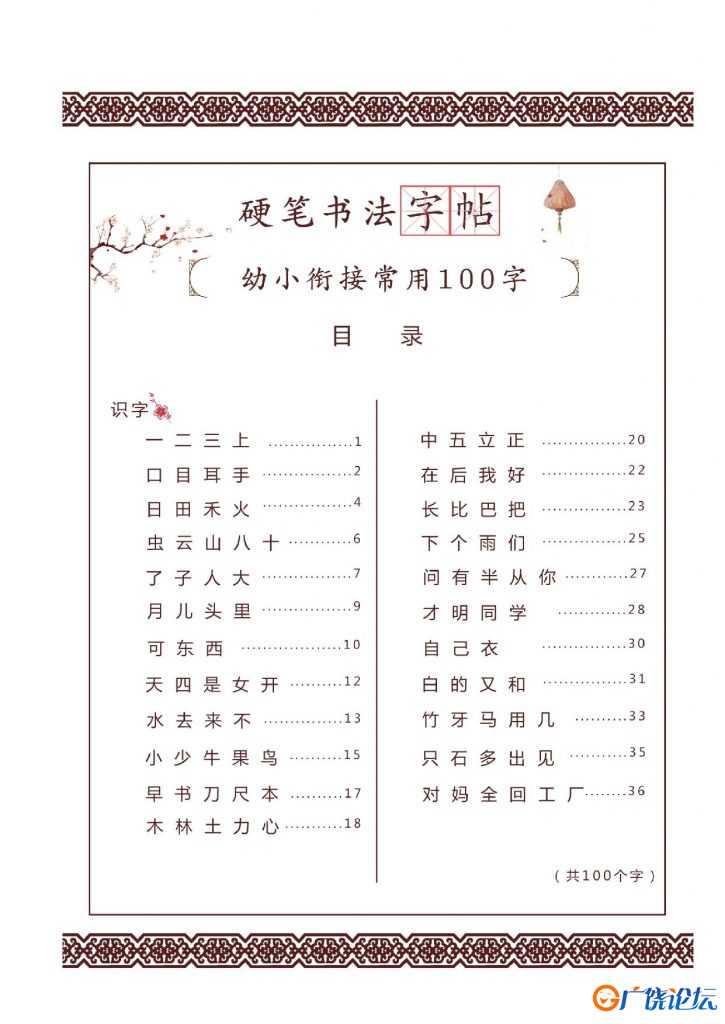 硬笔书法字帖
幼小衔接常用100字
目 录
识字
一 二 三 上 ················1
口 目 耳 手 ················2
日 田 禾 火 ················4
虫 云 山 八 十 ············6
了 子 人 大 ················7
月 儿 头 里 ················9
可 东 西 ··················10
天 四 是 女 开 ··········12
水 去 来 不 ··············13
小 少 牛 果 鸟 ··········15
早 书 刀 尺 本 ··········17
木 林 土 力 心 ···········18
中 五 立 正 ···············20
在 后 我 好 ···············22
长 比 巴 把 ···············23
下 个 雨 们 ···············25
问 有 半 从 你 ···········27
才 明 同 学 ············28
自 己 衣 ···············30
白 的 又 和 ···············31
竹 牙 马 用 几 ··········33
只 石 多 出 见 ··········35
对 妈 全 回 工 厂 ········36
（共100个字）
广饶论坛